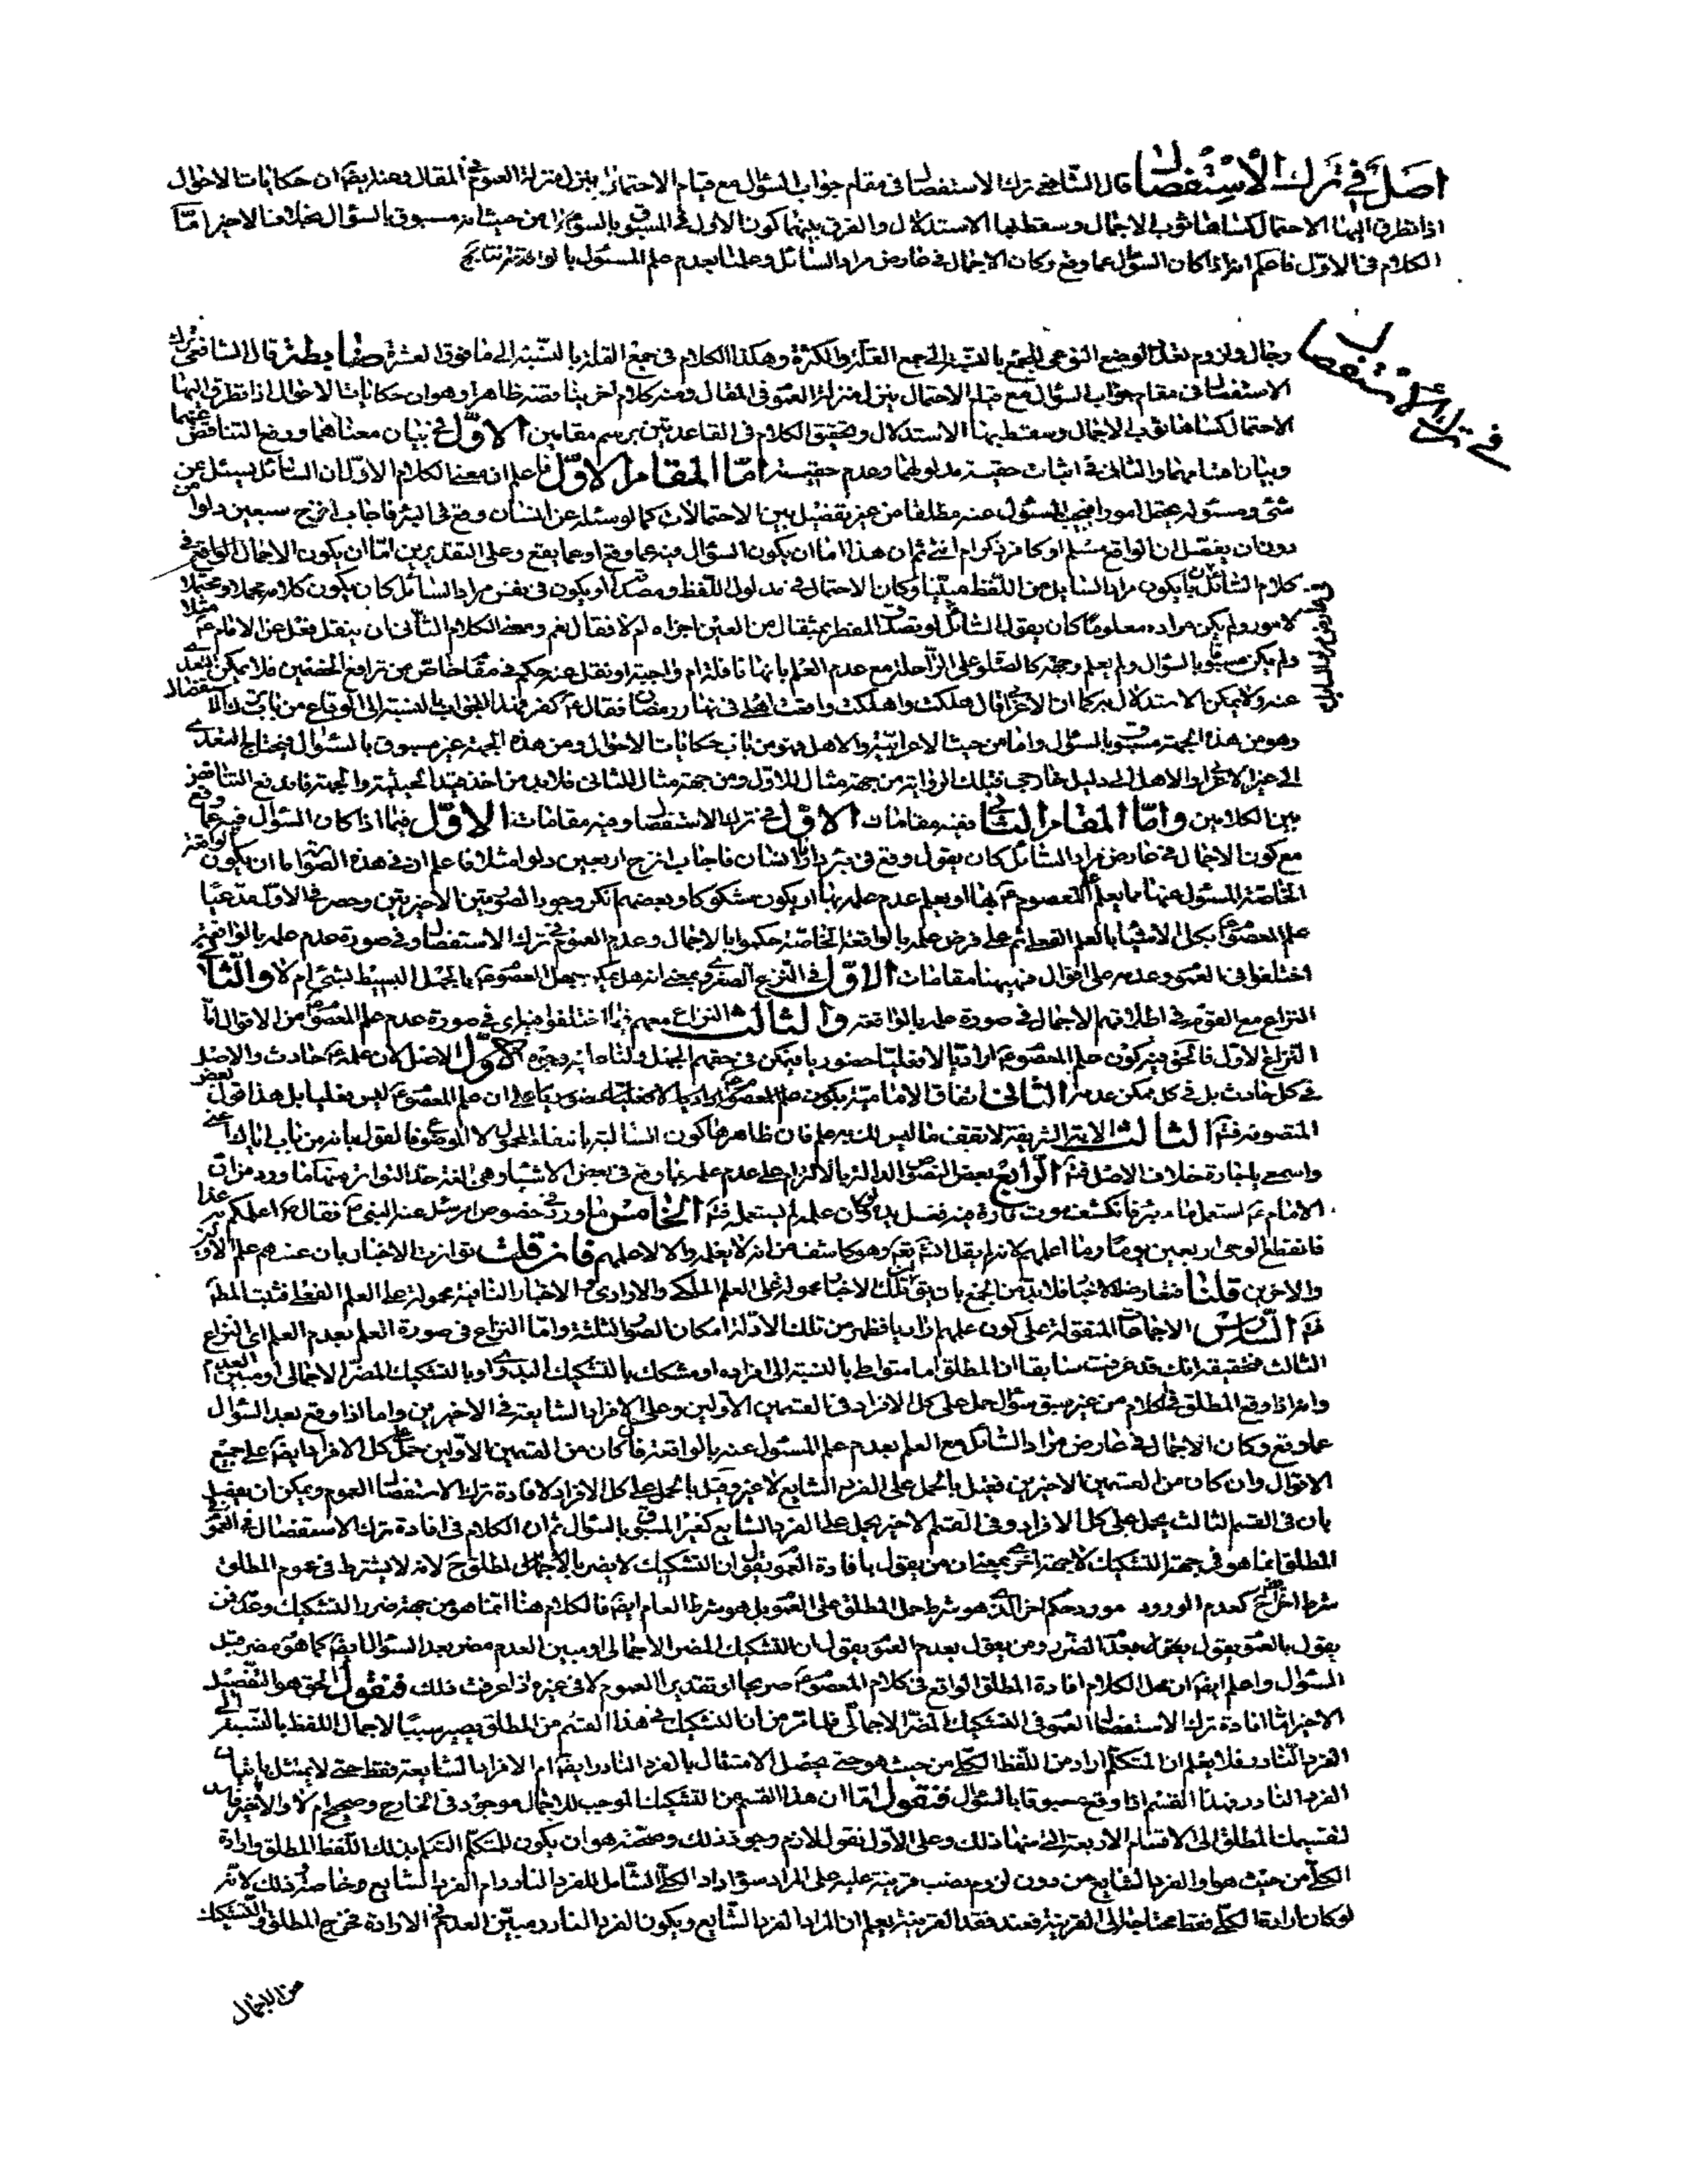 اصل في ترك الاستفصال قال الشافعي ترك الاستفصال في مقام جواب السؤال مع قيام الاحتمال ينزل منزلة العموم في المقال وعنه ايضا ان حكايات الاحوال
اذا تطرق اليها الاحتمال كساها ثوب الاجمال وسقط بها الاستدلال والفرق بينهما كون الاول في المسبوق بالسؤال من حيث انه مسبوق بالسؤال بخلاف الاخير امّا
الكلام في الاوّل فاعلم انه اذا كان السؤال عما وقع وكان الاجمال في عارض مراد السائل وعلمنا بعدم علم المسئول بالواقعة
في ترك الاستفصال
رجال ولزوم تعدد الوضع النوعي للجمع بالنسبة الى جمع القلة والكثرة وهكذا الكلام في جمع القلة بالنسبة الى ما فوق العشرة ضابطة قال الشافعي ترك
الاستفصال في مقام جواب السؤال مع قيام الاحتمال ينزل منزلة العموم في المقال وعنه كلام آخر يناقضه ظاهرا وهو ان حكايات الاحوال اذا تطرق اليها
الاحتمال كساها ثوب الاجمال وسقط بها الاستدلال وتحقيق الكلام في القاعدتين برسم مقامين الاوّل في بيان معناهما ورفع التناقض عنهما
وبيان هنا والثاني في اثبات حقيّة مدلولهما وعدم حقيّته امّا المقام الاوّل فاعلم ان معنى الكلام الاوّل ان السائل يسئل عن
شئ ومسئوله يحتمل امورا فيجيب المسئول عنه مطلقا من غير تفصيل بين الاحتمالات كما لو سئله عن انسان وقع في البئر فاجاب انزح سبعين دلوا من
دون ان يفصّل ان الواقع مسلم او كافر ذكر ام انثى ثم ان هذا اما ان يكون السؤال فيه عما وقع او عما يقع وعلى التقديرين امّا ان يكون الاجمال الواقع في
كلام السائل بان يكون مراد السايل من اللفظ مبيّنا وكان الاحتمال في مدلول اللفظ ومصداقه او يكون في نفس مراد السائل كان يكون كلامه مجملا ومحتملا
لامور ولم يكن مراده معلوما كان يقول السائل لو تصدق المفطر بمثقال من العين اجزاه ام لا فقال نعم ومعنى الكلام الثاني ان ينقل فعل عن الامام ع مثلا
ولم يكن مسبوقا بالسؤال ولم يعلم وجهه كالصلوة على الراحلة مع عدم العلم بانها نافلة ام واجبة او نقل عنه حكم في مقام خاص من ترافع الخصمين فلا يمكن التعدي
عنه ولا يمكن الاستدلال به كما ان الاعرابي قال هلكت واهلكت واقعت اهلي في نهار رمضان فقال ع كفّر فهذا الجواب بالنسبة الى الوقاع من باب ترك الاستفصال
وهو من هذه الجهة مسبوق بالسؤال واما من حيث الاعرابية والاهل فهو من باب حكايات الاحوال ومن هذه الجهة غير مسبوق بالسؤال فيحتاج التعدي
الى غير الاعرابي والاهل الى دليل خارجي فتلك الرواية من جهة مثال للاول ومن جهة مثال للثاني فلا بد من اخذ قيد الحيثية والجهة فاندفع التناقض
بين الكلامين وامّا المقام الثاني ففيه مقامات الاوّل في ترك الاستفصال وفيه مقامات الاوّل فيما اذا كان السؤال فيه عما وقع
مع كون الاجمال في عارض مراد السائل كان يقول وقع في بئر دارنا انسان فاجاب انزح اربعين دلوا مثلا فاعلم ان في هذه الصورة اما ان يكون الواقعة
الخاصة المسئول عنها مما يعلم المعصوم ع بها او يعلم عدم علمه بها او يكون مشكوكا وبعضهم انكر وجود الصورتين الاخيرتين وحصر في الاوّل مدّعيا
علم المعصوم ع بكل الاشياء بالعلم الفعلي ثم على فرض علمه بالواقعة الخاصة حكموا بالاجمال وعدم العموم في ترك الاستفصال وفي صورة عدم علمه بالواقعة
اختلفوا في العموم وعدمه على اقوال فههنا مقامات الاوّل في النزاع الصغروي بمعنى انه هل يمكن جهل المعصوم ع بالجهل البسيط لشئ ام لا والثاني
النزاع مع القوم في اطلاقهم الاجمال في صورة علمه بالواقعة والثالث النزاع معهم فيما اختلفوا فيه اي في صورة عدم علم المعصوم من الاقوال امّا
النزاع الاوّل فالحق فيه كون علم المعصوم ع اراديّا لا فعليّا حضوريا فيمكن في حقهم الجهل ولنا عليه وجوه الاوّل الاصل لان علمه ع حادث والاصل
في كل حادث بل في كل ممكن عدمه الثاني اتفاق الامامية بكون علم المعصوم اراديا لا فعليا حضوريا على ان علم المعصوم ع ليس فعليا بل هذا قول بعض
المتصوفة فتم الثالث الاية الشريفة لا تقف ما ليس لك به علم فان ظاهرها كون السالبة بانتفاء المحمول لا الموضوع فالقول بانه من باب اياك اعني
واسمعي يا جارة خلاف الاصل فتم الرابع بعض النصوص الدالة بالالتزام على عدم علمه بما وقع في بعض الاشياء وهي لغة حد التواتر منها ما ورد من ان
الامام ع استعمل ماء بئر فانكشف موت فارة فيه فغسل يده ولو كان علمه لم يستعمله فتم الخامس ما ورد في خصوص امر سئل عنه النبي ص فقال ص اعلمكم به غدا
فانقطع الوحي اربعين يوما وما اعلمهم لانه لم يقل انشاء الله تعالى وهو كاشف من انه لا يعلمه والا لاعلمهم فان قلت تواترت الاخبار بان عندهم علم الاولين
والاخرين قلنا فتعارض الاخبار فلا بد من الجمع بان تلك الاخبار محمولة على العلم الملكي والارادي والاخبار النافية محمولة على العلم الفعلي فثبت المط
فتم السادس الاجماعات المنقولة على كون علمهم اراديا فظهر من تلك الادلة امكان الصور الثلثة وامّا النزاع في صورة العلم بعدم العلم اي النزاع
الثالث فتحقيقه انك قد عرفت سابقا ان المطلق اما متواطي بالنسبة الى افراده او مشكك بالتشكيك البدوي او بالتشكيك المضر الاجمالي او مبين العدم
وانه اذا وقع المطلق في كلام من غير سبق سؤال حمل على كل الافراد في القسمين الاولين وعلى الافراد الشايعة في الاخيرين واما اذا وقع بعد السؤال
عما وقع وكان الاجمال في عارض مراد السائل مع العلم بعدم علم المسئول عنه بالواقعة فان كان من القسمين الاوّلين حمل على كل الافراد ايضا على جميع
الاقوال وان كان من القسمين الاخيرين فقيل بالحمل على الفرد الشايع لا غير وقيل بالحمل على كل الافراد لافادة ترك الاستفصال العموم ويمكن ان يفصل
بان في القسم الثالث يحمل على كل الافراد وفي القسم الاخير يحمل على الفرد الشايع كغير المسبوق بالسؤال ثم ان الكلام في افادة ترك الاستفصال في العموم
المطلق انما هو في جهة التشكيك لا جهة اخرى بمعنى ان من يقول بافادة العموم يقول ان التشكيك لا يضر بالاجمال المطلق ح لانه لا يشترط في عموم المطلق
شرط آخر ح كعدم الورود مورد حكم آخر الذي هو شرط حمل المطلق على العموم بل هو شرط العام ايضا فالكلام هنا انما هو من جهة ضرر التشكيك وعدمه فمن
يقول بالعموم يقول بعدم الضرر ومن يقول بعدم العموم يقول ان التشكيك المضر الاجمالي او مبين العدم مضر بعد السؤال ايضا كما هو مضر قبل
السؤال واعلم ايضا ان محل الكلام افادة المطلق الواقع في كلام المعصوم ع صريحا او تقديرا العموم لا في غيره اذا عرفت ذلك فنقول الحق هو التفصيل
الاخير امّا افادة ترك الاستفصال العموم في التشكيك المضر الاجمالي فلما مر من ان التشكيك في هذا القسم من المطلق يصير سببا لاجمال اللفظ بالنسبة الى
الفرد النادر فلا يعلم ان المتكلم اراد من اللفظ الكلي من حيث هو حتى يحصل الامتثال بالفرد النادر ايضا ام الافراد الشايعة فقط حتى لا يمتثل باتيان
الفرد النادر فهذا القسم اذا وقع مسبوقا بالسؤال فنقول امّا ان هذا القسم من التشكيك الموجب للاجمال موجود في الخارج وصحيح ام لا والاخير فاسد
لتقسيمك المطلق الى الاقسام الاربعة التي منها ذلك وعلى الاوّل نقول لازم وجود ذلك وصحته هو ان يكون للمتكلم التكلم بذلك اللفظ المطلق وارادة
الكلي من حيث هو او الفرد الشايع من دون لزوم نصب قرينة عليه على المراد سواء اراد الكلي الشامل للفرد النادر ام الفرد الشايع وخاصته ذلك لانه
لو كان ارادة الكلي فقط محتاجا الى القرينة فعند فقد القرينة يعلم ان المراد الفرد الشايع ويكون الفرد النادر مبيّن العدم في الارادة فخرج المطلق والتشكيك
من الاجمال